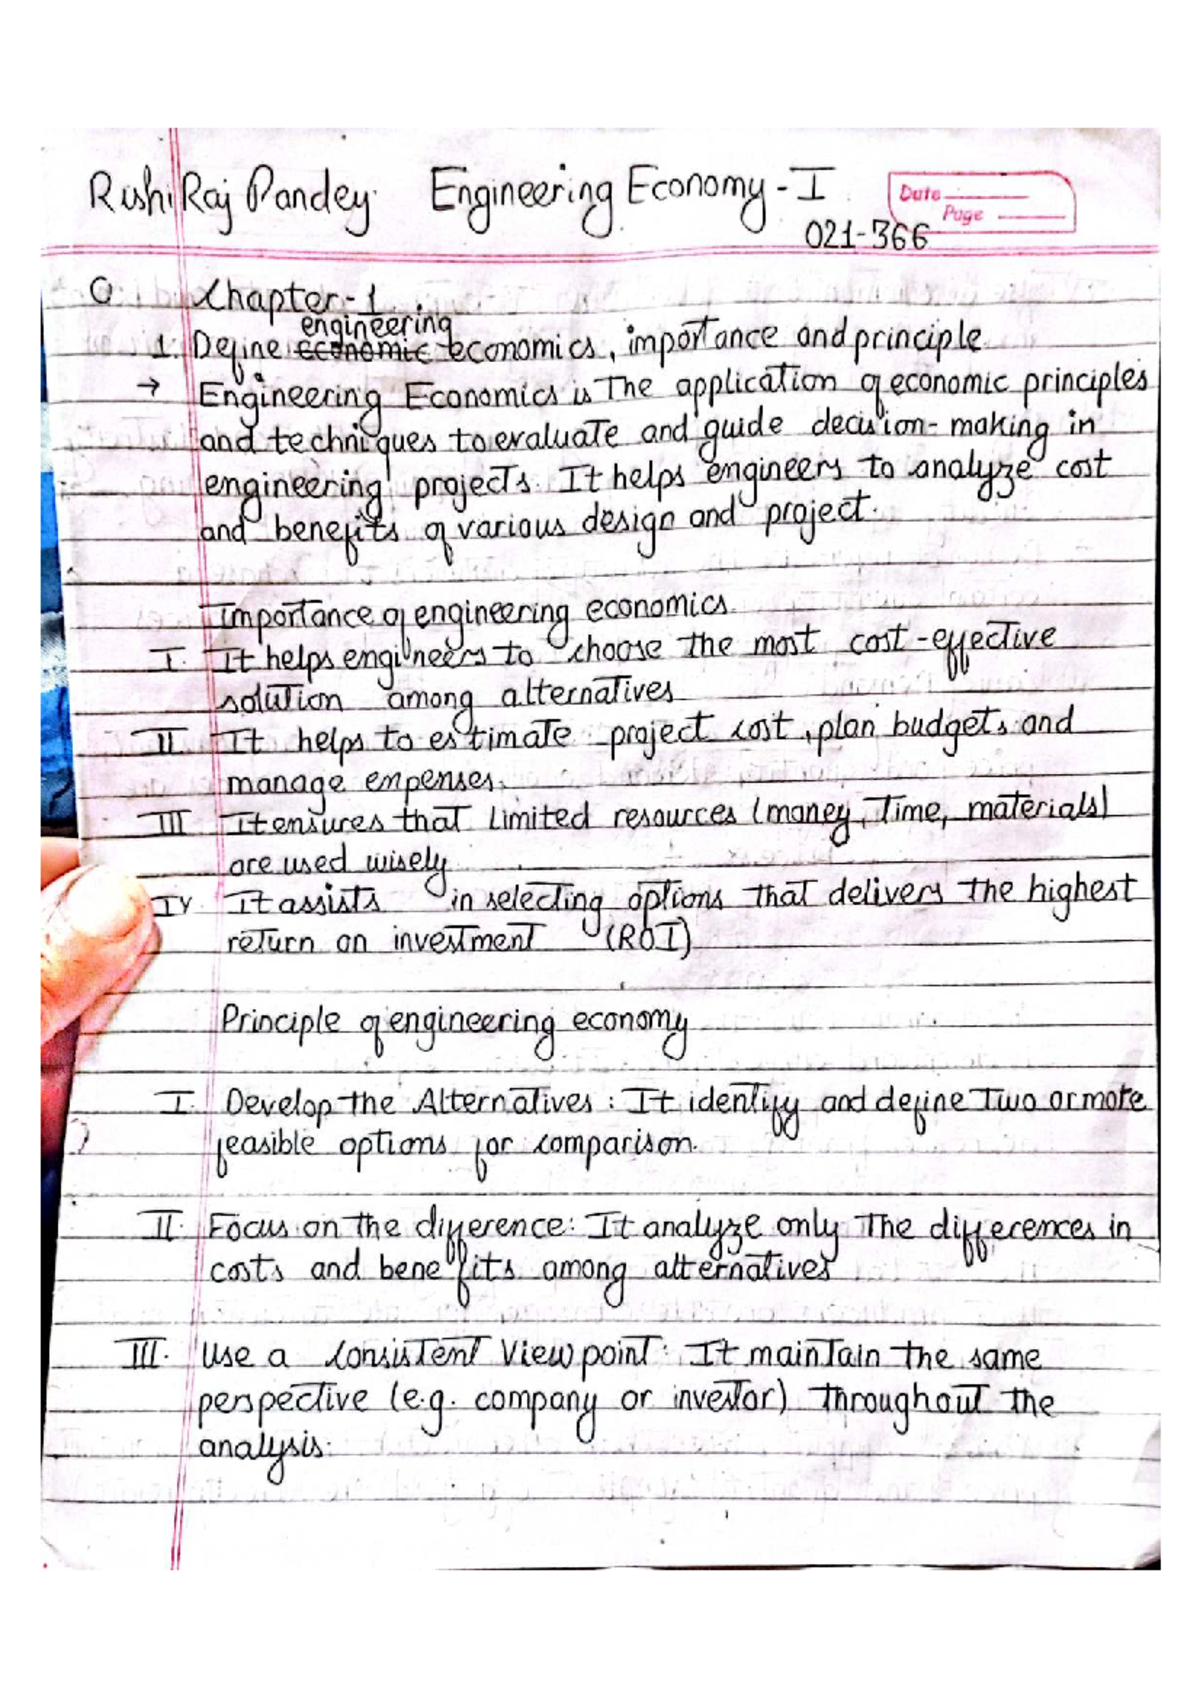 Rishi Raj Pandey. Engineering Economy - I
Date
Page
021-366
Chapter-1
engineering
1. Define economic economics, importance and principle
→ Engineering Economics is the application of economic principles
and techniques to evaluate and guide decision-making in
engineering projects. It helps engineers to analyze cost
and benefits of various design and project.
Importance of engineering economics
I. It helps engineers to choose the most cost-effective
solution among alternatives
II It helps to estimate project cost, plan budgets and
manage expenses.
III It ensures that limited resources (money, Time, materials)
are used wisely
IV It assists in selecting options that delivers the highest
return on investment (ROI)
Principle of engineering economy
I. Develop the Alternatives : It identify and define Two or more
feasible options for comparison.
II. Focus on the difference: It analyze only The differences in
costs and benefits among alternatives
III. Use a consistent View point: It maintain the same
perspective (e.g. company or investor) throughout the
analysis.